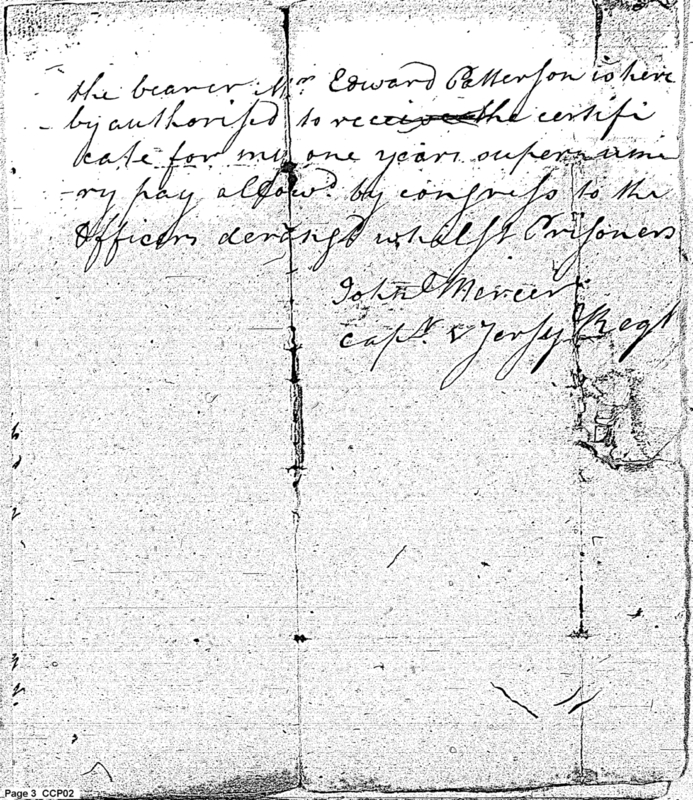 the bearer Mr Edward Patterson is here
by authorised to receive the certifi
cate for my one years supernume
-ry pay allowd by congress to the
Officers derangd whilst Prisoners
John Mercer
capn Jersy Regt
Page 3 CCP02